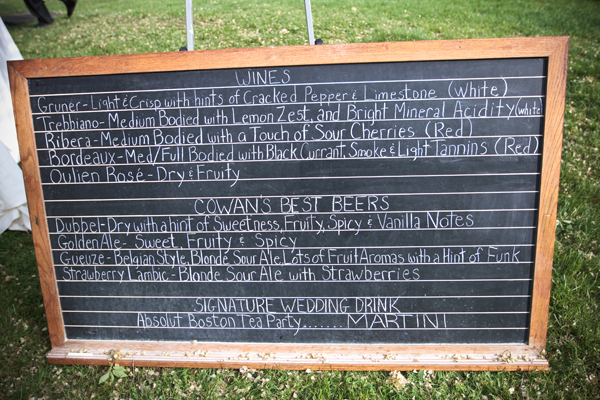 WINES
Gruner-Light & Crisp with hints of Cracked Pepper & Limestone (White)
Trebbiano-Medium Bodied with Lemon Zest, and Bright Mineral Acidity (white)
Ribera-Medium Bodied with a Touch of Sour Cherries (Red)
Bordeaux-Med/Full Bodied with Black Currant, Smoke & Light Tannins (Red)
Oulien Rosé-Dry & Fruity
COWAN'S BEST BEERS
Dubbel-Dry with a hint of Sweetness, Fruity, Spicy & Vanilla Notes
Golden Ale- Sweet, Fruity & Spicy
Gueuze-Belgian Style, Blonde Sour Ale, Lots of Fruit Aromas with a Hint of Funk
Strawberry Lambic-Blonde Sour Ale with Strawberries
SIGNATURE WEDDING DRINK
Absolut Boston Tea Party......MARTINI